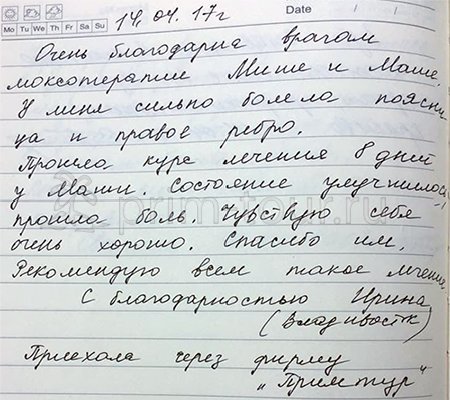 Mo Tu We Th Fr Sa Su
14.04.17г
Date / /
Очень благодарна врачам
моксотерапии Мише и Маше.
У меня сильно болела поясни
ца и правое ребро.
Прошла курс лечения 8 дней
у Маши. Состояние улучшилось,
прошла боль. Чувствую себя
очень хорошо. Спасибо им.
Рекомендую всем такое лечение
С благодарностью Ирина
(Владивосток)
Приехала через фирму
„Примтур"
primtour.ru